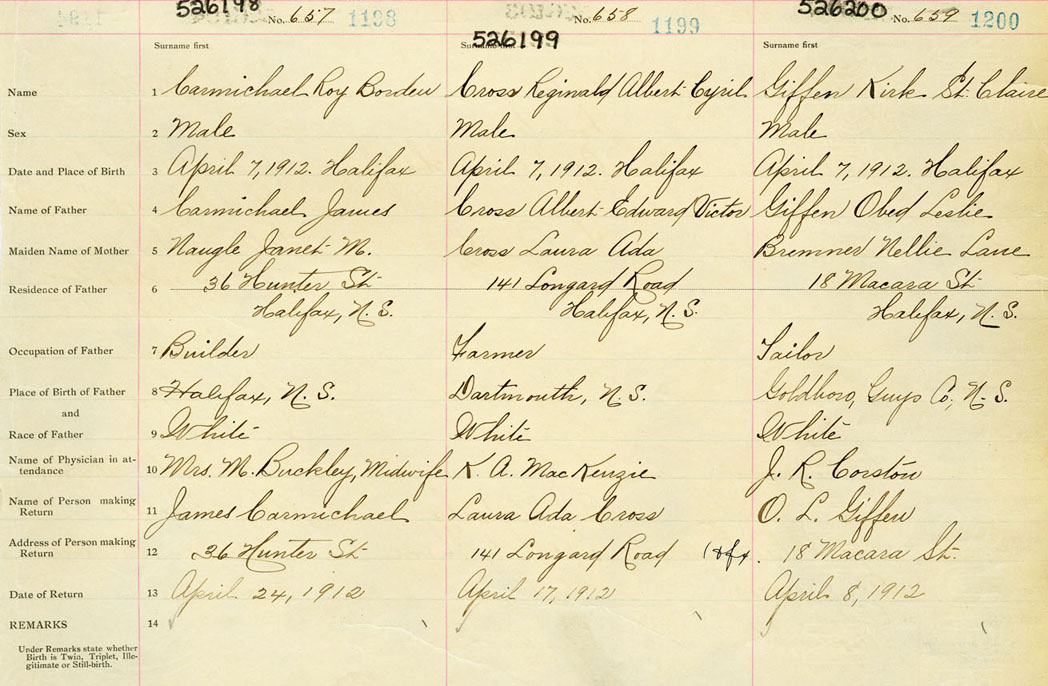 526198 No. 657 1198 No. 658 1199 526200 No. 659 1200
Surname first Surname first 526199 Surname first
Name 1 Carmichael Roy Borden Cross Reginald Albert Cyril Giffen Kirk St. Claire
Sex 2 Male Male Male
Date and Place of Birth 3 April 7, 1912. Halifax April 7, 1912. Halifax April 7, 1912. Halifax
Name of Father 4 Carmichael James Cross Albert Edward Victor Giffen Obed Leslie
Maiden Name of Mother 5 Naugle Janet M. Cross Laura Ada Bremner Nellie Lane
Residence of Father 6 36 Hunter St 141 Longard Road 18 Macara St
Halifax, N.S. Halifax, N.S. Halifax, N.S.
Occupation of Father 7 Builder Farmer Tailor
Place of Birth of Father 8 Halifax, N.S. Dartmouth, N.S. Goldboro, Guys Co, N.S.
and
Race of Father 9 White White White
Name of Physician in at-
tendance 10 Mrs. M. Buckley, Midwife K. A. MacKenzie J. R. Corston
Name of Person making
Return 11 James Carmichael Laura Ada Cross O. L. Giffen
Address of Person making
Return 12 36 Hunter St 141 Longard Road 18 Macara St.
Date of Return 13 April 24, 1912 April 17, 1912 April 8, 1912
REMARKS 14
Under Remarks state whether
Birth is Twin, Triplet, Ille-
gitimate or Still-birth.